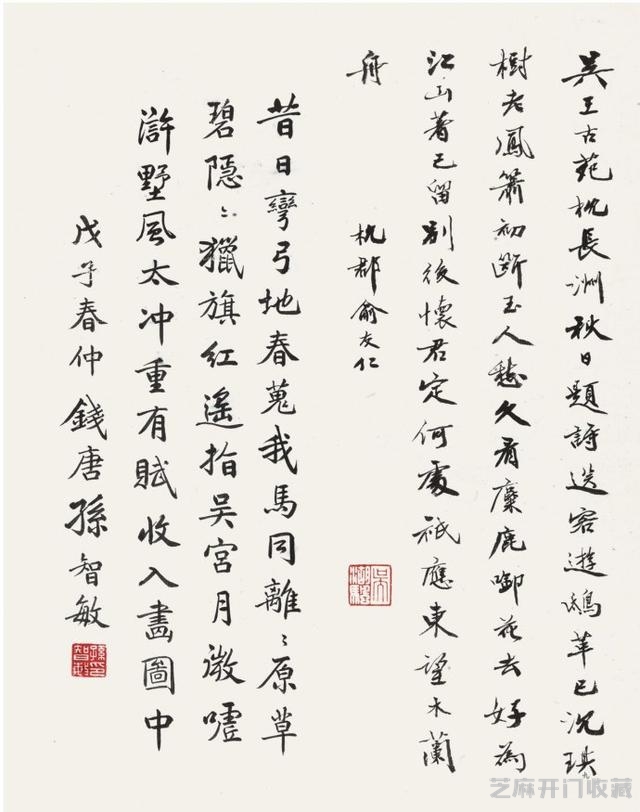 吳王古苑枕長洲秋日題詩送客遊鴟革已沉琪
樹老鳳簫初斷玉人愁久看麋鹿啣花去好為
江山著已留別後懷君定何處祇應東望木蘭
舟
杭郡俞友仁
昔日彎弓地春蒐我馬同離〻原草
碧隱〻獵旗紅遙指吳宮月微噓
滸墅風太冲重有賦收入畫圖中
戊子春仲錢唐孫智敏
孫印智敏
芝麻开门收藏